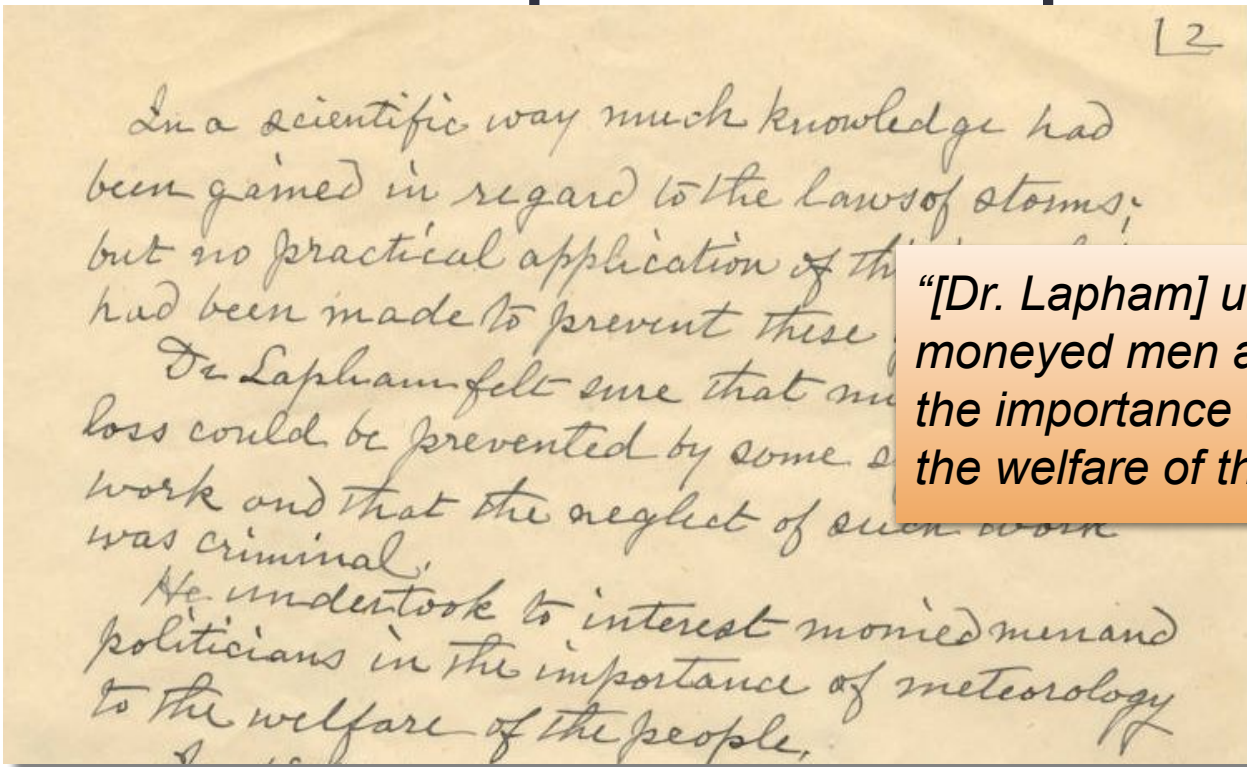 2
In a scientific way much knowledge had
been gained in regard to the laws of storms;
but no practical application of
had been made to prevent these
Dr Lapham felt sure that
loss could be prevented by some
work and that the neglect of such work
was criminal.
He undertook to interest monied men and
politicians in the importance of meteorology
to the welfare of the people.
“[Dr. Lapham] u
moneyed men a
the importance
the welfare of th